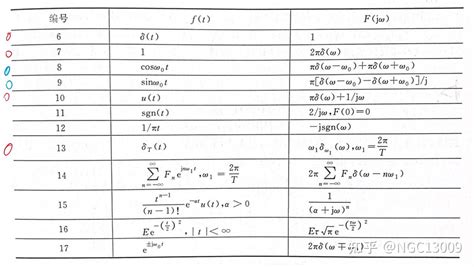 编号 f(t) F(jω)
6 δ(t) 1
7 1 2πδ(ω)
8 cosω₀t πδ(ω−ω₀)+πδ(ω+ω₀)
9 sinω₀t π[δ(ω−ω₀)−δ(ω+ω₀)]/j
10 u(t) πδ(ω)+1/jω
11 sgn(t) 2/jω,F(0)=0
12 1/πt −jsgn(ω)
13 δ_T(t) ω₁δ_ω₁(ω),ω₁=2π/T
14 ∑_{n=−∞}^{∞} Fₙe^{jnω₁t},ω₁=2π/T 2π∑_{n=−∞}^{∞} Fₙδ(ω−nω₁)
15 t^{n−1}/(n−1)! e^{−αt}u(t),α>0 1/(α+jω)ⁿ
16 Ee^{−(t/τ)²},|t|<∞ Eτ√π e^{−(τω/2)²}
17 e^{±jω₀t} 2πδ(ω∓ω₀)
知乎 @NGC13009